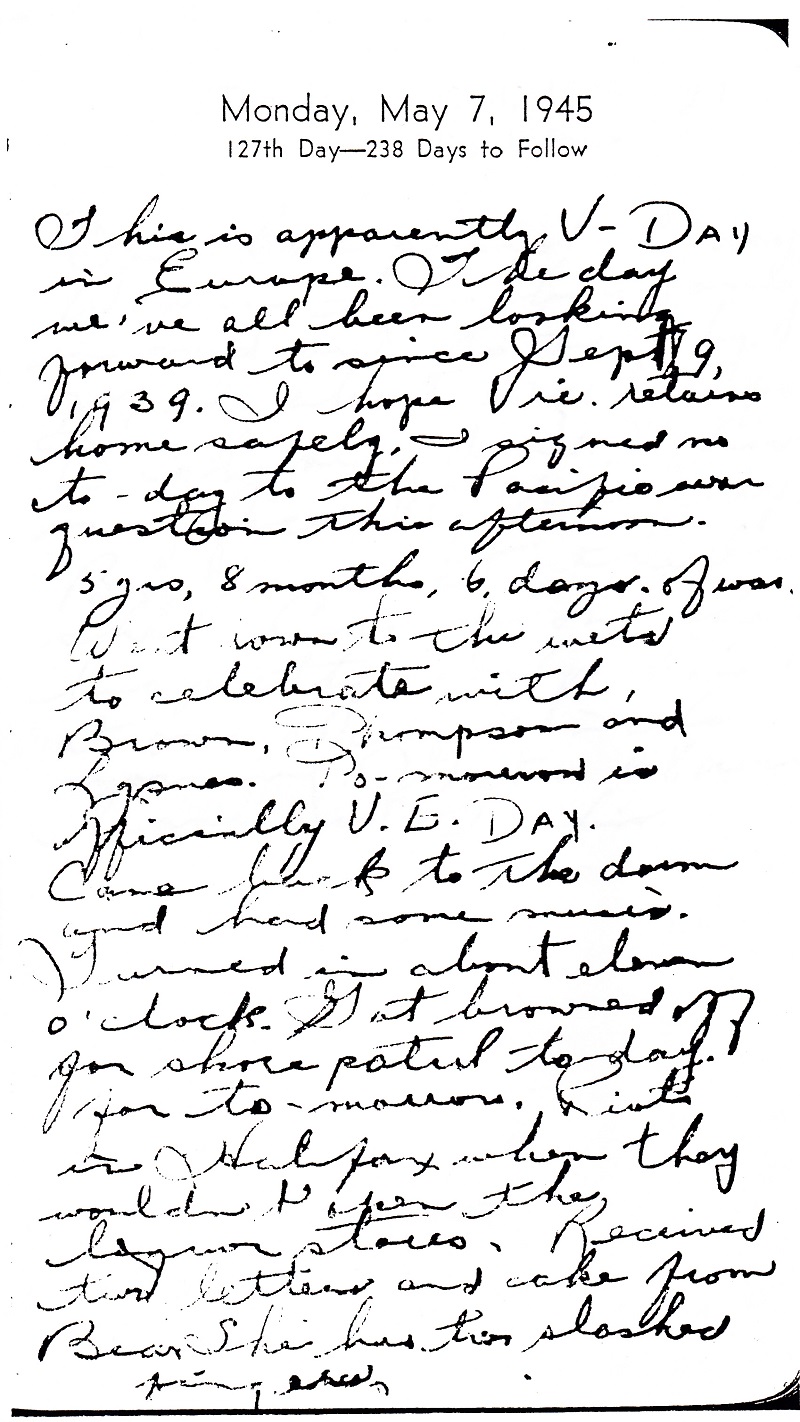 Monday, May 7, 1945
127th Day—238 Days to Follow
This is apparently V-DAY
in Europe. The day
we've all been looking
forward to since Sept 9,
1939. I hope Vic. retains
home safely, I signed no
to-day to the Pacific war
question this afternoon.
5 yrs, 8 months, 6, days. of war.
Went down to the wets
to celebrate with,
Brown, Thompson and
To-morrow is
officially V.E. DAY.
Came back to the dorm
and had some music.
Turned in about eleven
o'clock. Got browned off
for shore patrol to-day.
for to-morrow. Riots
in Halifax when they
wouldn't open the
liquor stores. Received
two letters and cake from
She has two slashed
fingers.